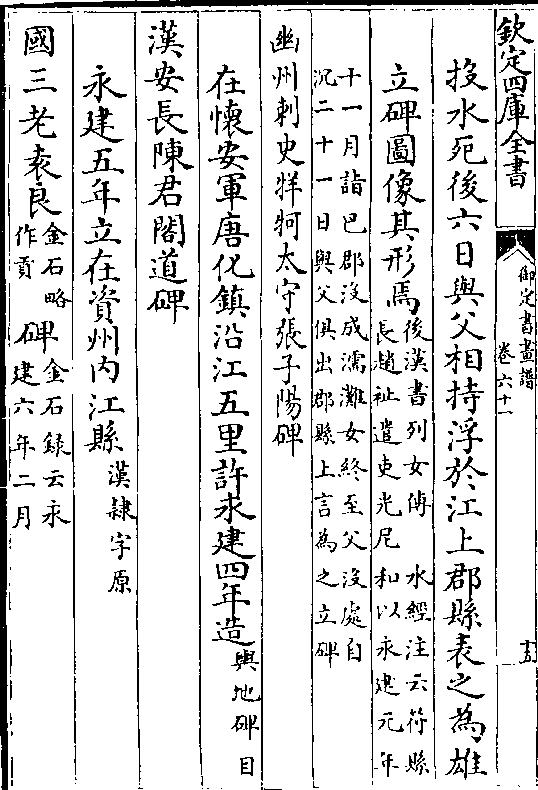 欽定四庫全書
御定書畫譜
卷六十一
十五
投水死後六日與父相持浮於江上郡縣表之為雄
立碑圖像其形焉後漢書列女傳 水經注云符縣
長趙祉遣吏光尼和以永建元年
十一月詣巴郡沒成濡灘女終至父沒處自
沉二十一日與父俱出郡縣上言為之立碑
幽州刺史牂牁太守張子陽碑
在懷安軍唐化鎮沿江五里許永建四年造輿地碑目
漢安長陳君閣道碑
永建五年立在資州内江縣漢隸字原
國三老袁良金石略作貢碑金石録云永建六年二月